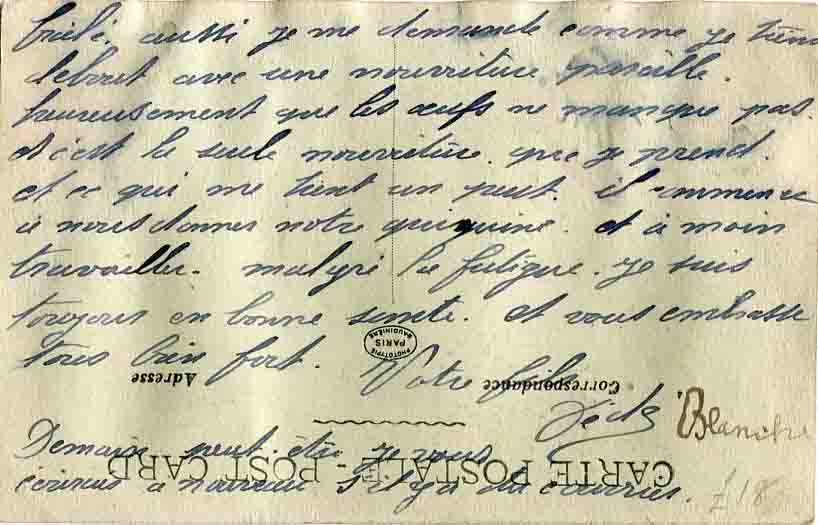 aussi je me demande comme je tiens
debout avec une nourriture pareille.
heureusement que les œufs ne manque pas.
et c'est la seule nourriture que je prend.
et ce qui me tient un peut. il commence
à nous donner notre quiquine. et a moin
travailler. malgré la fatigue. je suis
toujours en bonne sente. et vous embrasse
tous bien fort. Votre fils
Adresse
Correspondance
PHOTOTYPIE BAUDINIÈRE PARIS
Blanche
Demain peut etre je vous
écrirais a nouveau s'il y a du courrier.
CARTE POSTALE - POST CARD